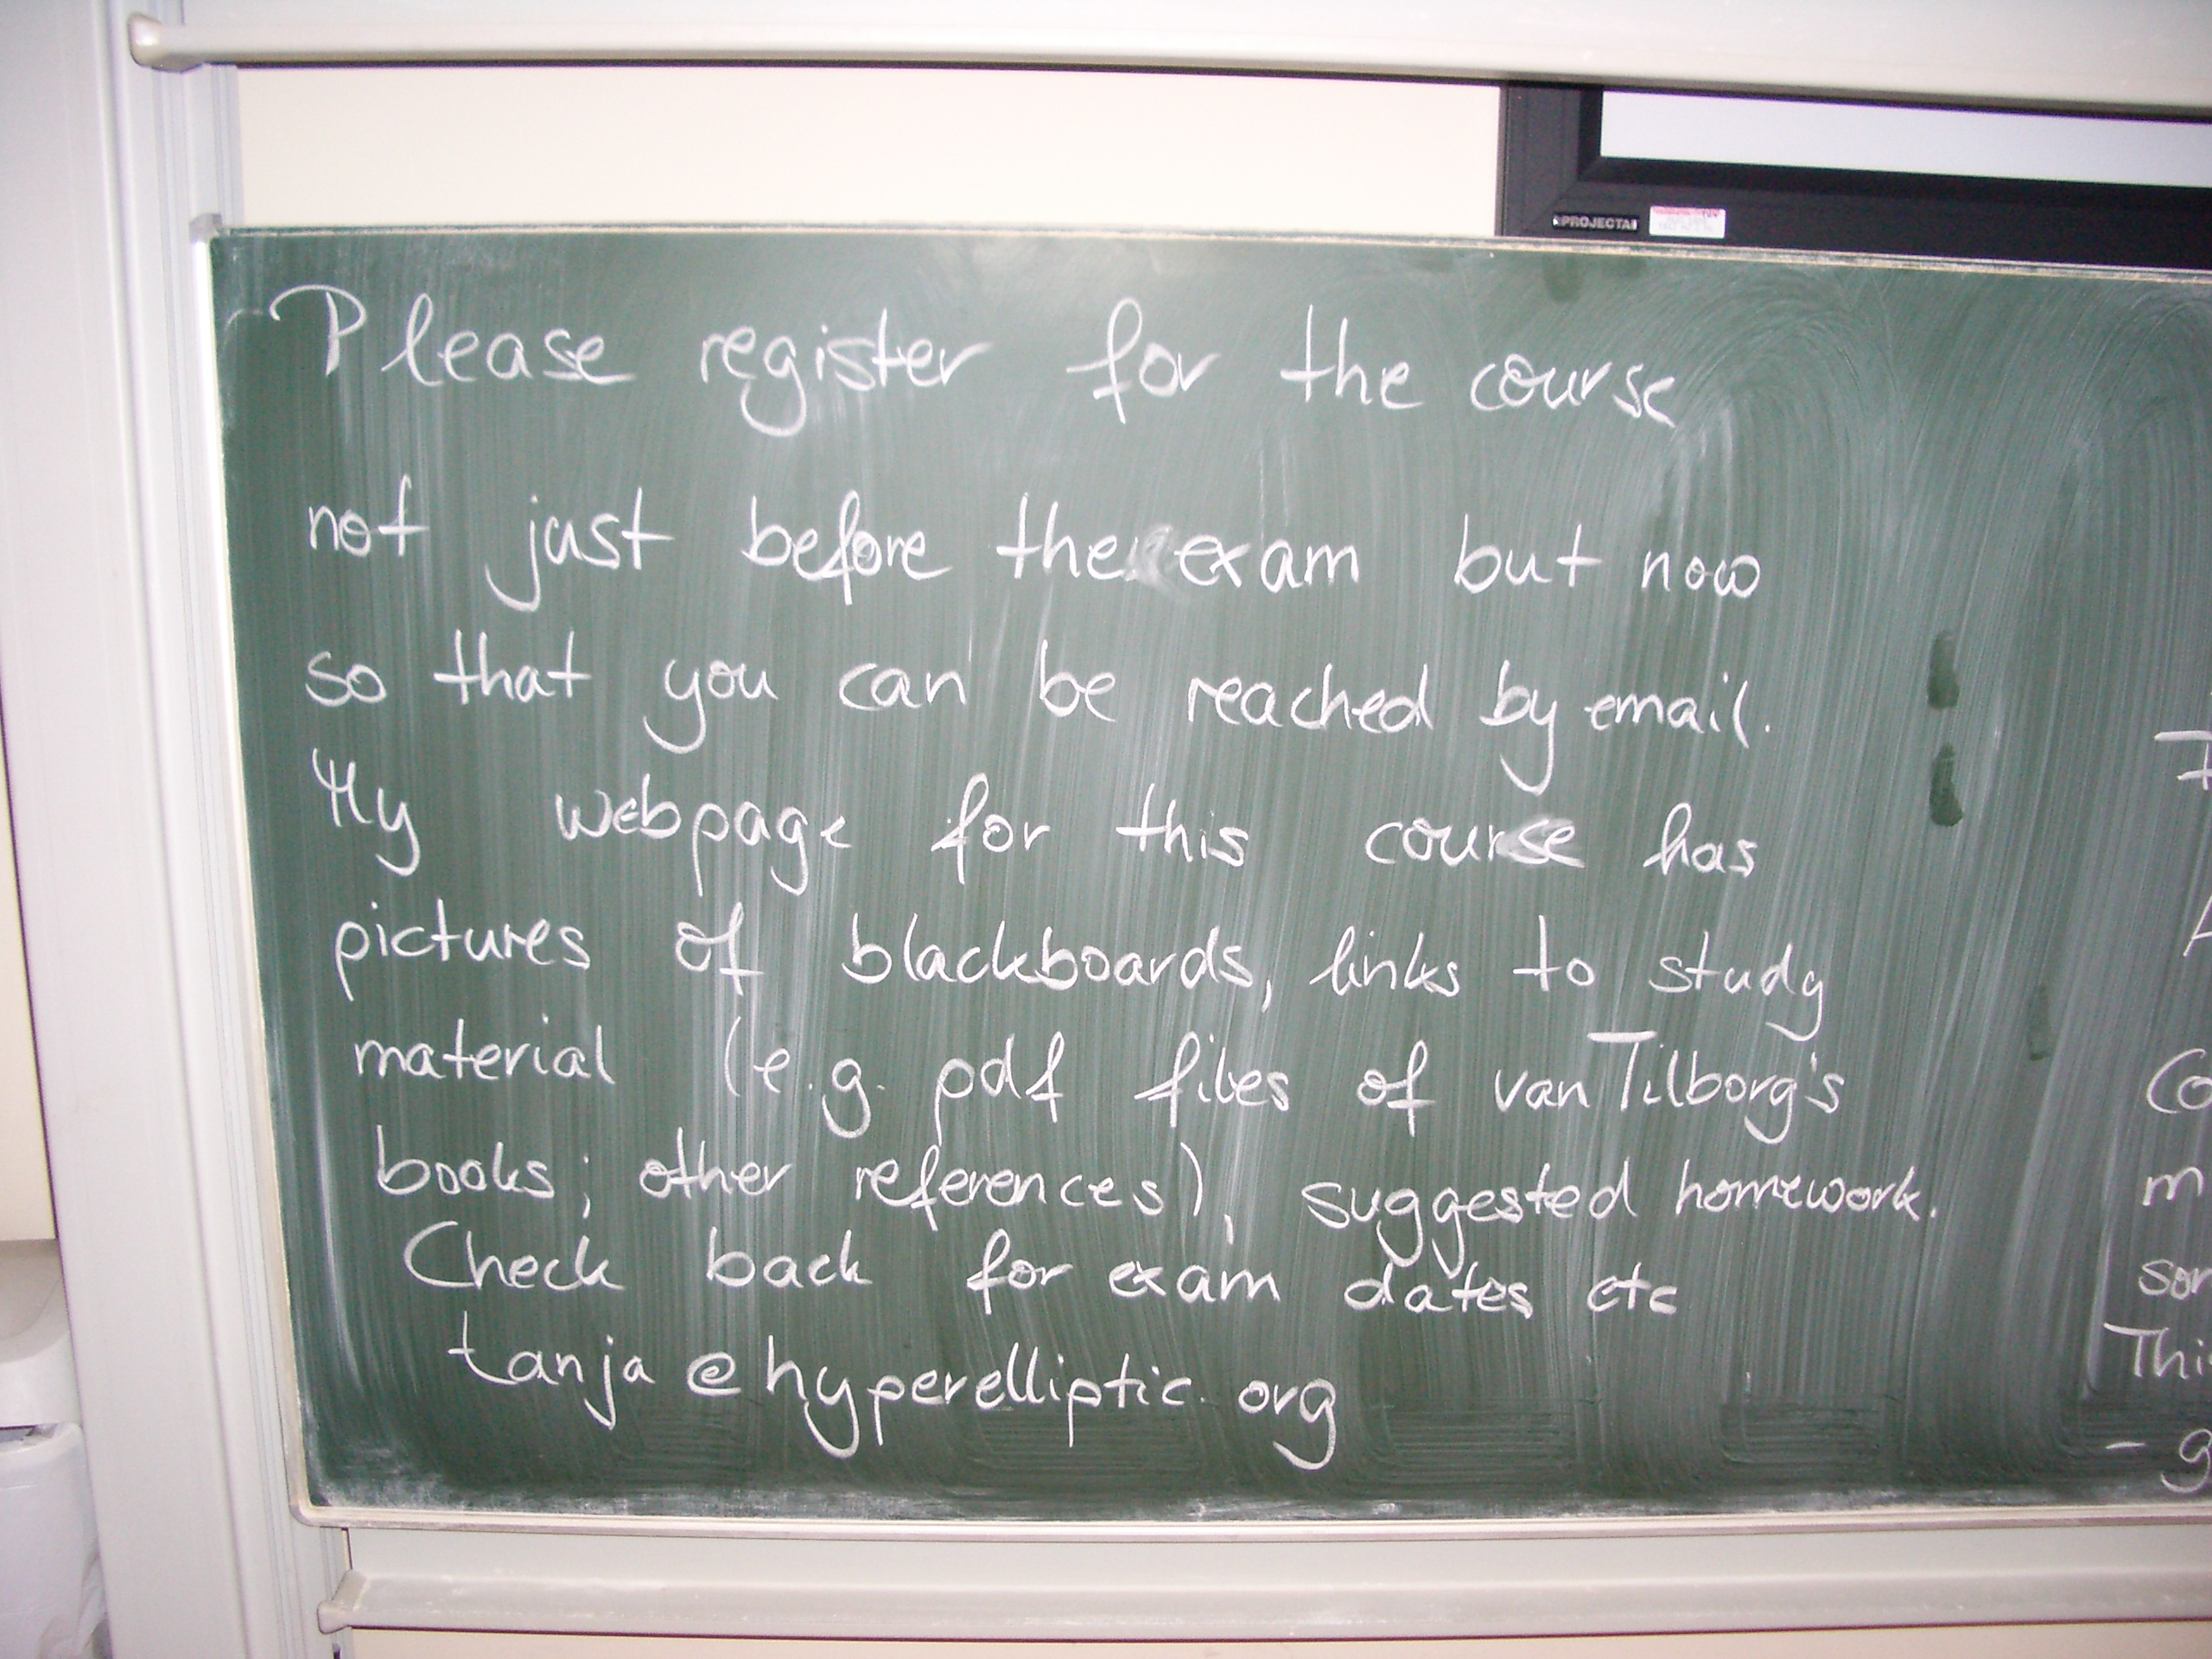 PROJECTA
Please register for the course
not just before the exam but now
so that you can be reached by email.
My webpage for this course has
pictures of blackboards, links to study
material (e.g. pdf files of van Tilborg's
books; other references), suggested homework.
Check back for exam dates etc
tanja@hyperelliptic.org